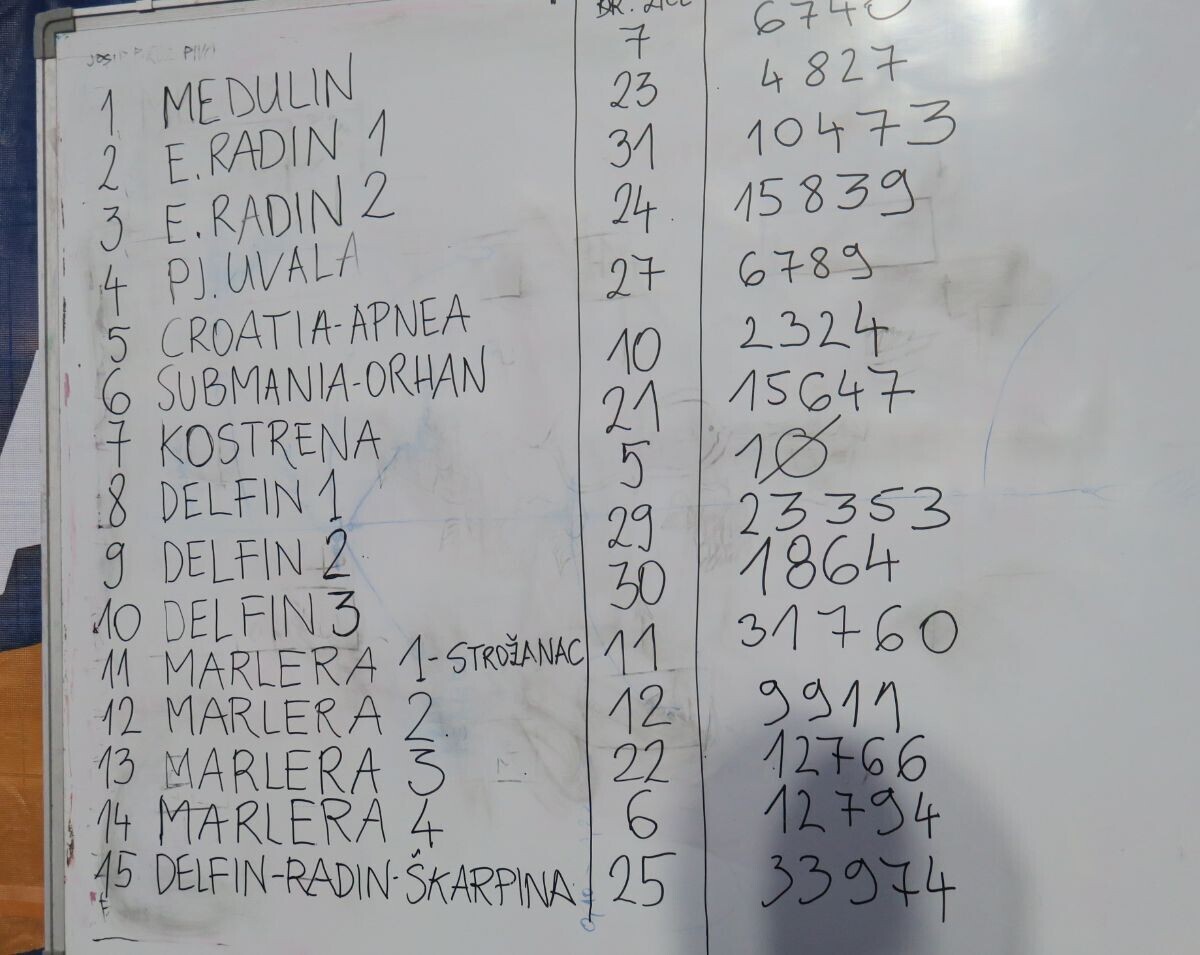 BR.
1 MEDULIN 7 6740
2 E.RADIN 1 23 4827
3 E.RADIN 2 31 10473
4 PJ.UVALA 24 15839
5 CROATIA-APNEA 27 6789
6 SUBMANIA-ORHAN 10 2324
7 KOSTRENA 21 15647
8 DELFIN 1 5 1Ø
9 DELFIN 2 29 23353
10 DELFIN 3 30 1864
11 MARLERA 1-STROŽANAC 11 31760
12 MARLERA 2 12 9911
13 MARLERA 3 22 12766
14 MARLERA 4 6 12794
15 DELFIN-RADIN-ŠKARPINA 25 33974